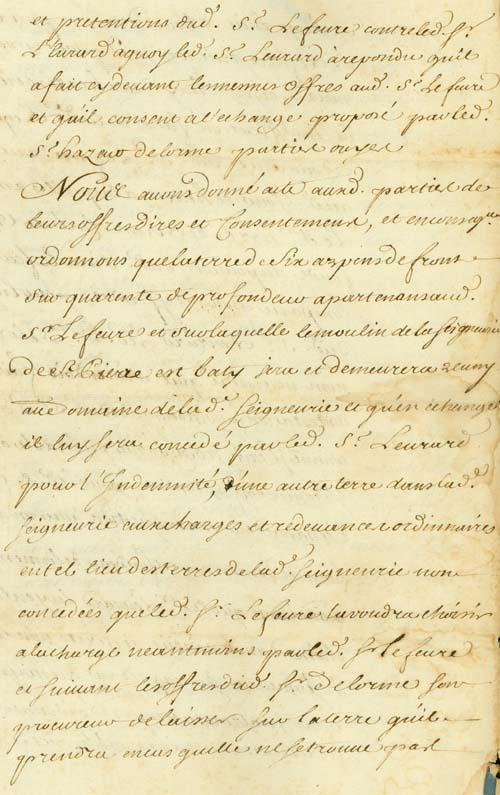 et pretentions dud. Sr. Lefeure contre led. Sr.
Leurard a quoy led. Sr. Leurard a repondu qu'il
a fait cy devant les mesmes offres aud. Sr. Lefeure
et qu'il consent a l'echange proposé par led.
Sr. hazeur delorme parties ouyes
Nous avons donné acte ausd. parties de
leurs offres dires et Consentemens, et en consq.ce
ordonnons que la terre de Six arpens de front
sur quarente de profondeur apartenans aud.
Sr. Lefeure et sur laquelle le moulin de la seigneurie
de St. Pierre est baty sera et demeurera reuny
au Domaine de lad. seigneurie et qu'en echange
il luy sera concedé par led. Sr. Leurard
pour l'Indemnité, d'une autre terre dans lad.
seigneurie aux charges et redevances ordinnaires
en tel lieu des terres de lad. seigneurie non
concedées que led. Sr. Lefeure la voudra choisir
a la charge neantmoins par led. Sr lefeure
et suivant les offres dud. Sr. Delorme son
procureur de laisser sur la terre qu'il
prendra en cas quelle ne se trouue pas